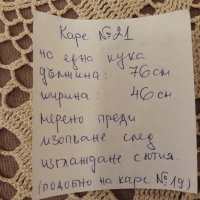 Каре №21
на една кука
дължина: 76см
ширина: 46см
мерено преди
изопване след
изглаждане с ютия.
(подобно на каре №19)